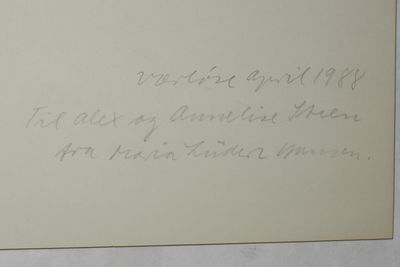 Værløse April 1988
Til Alex og Annelise Steen
fra Maria Lüders Hansen.